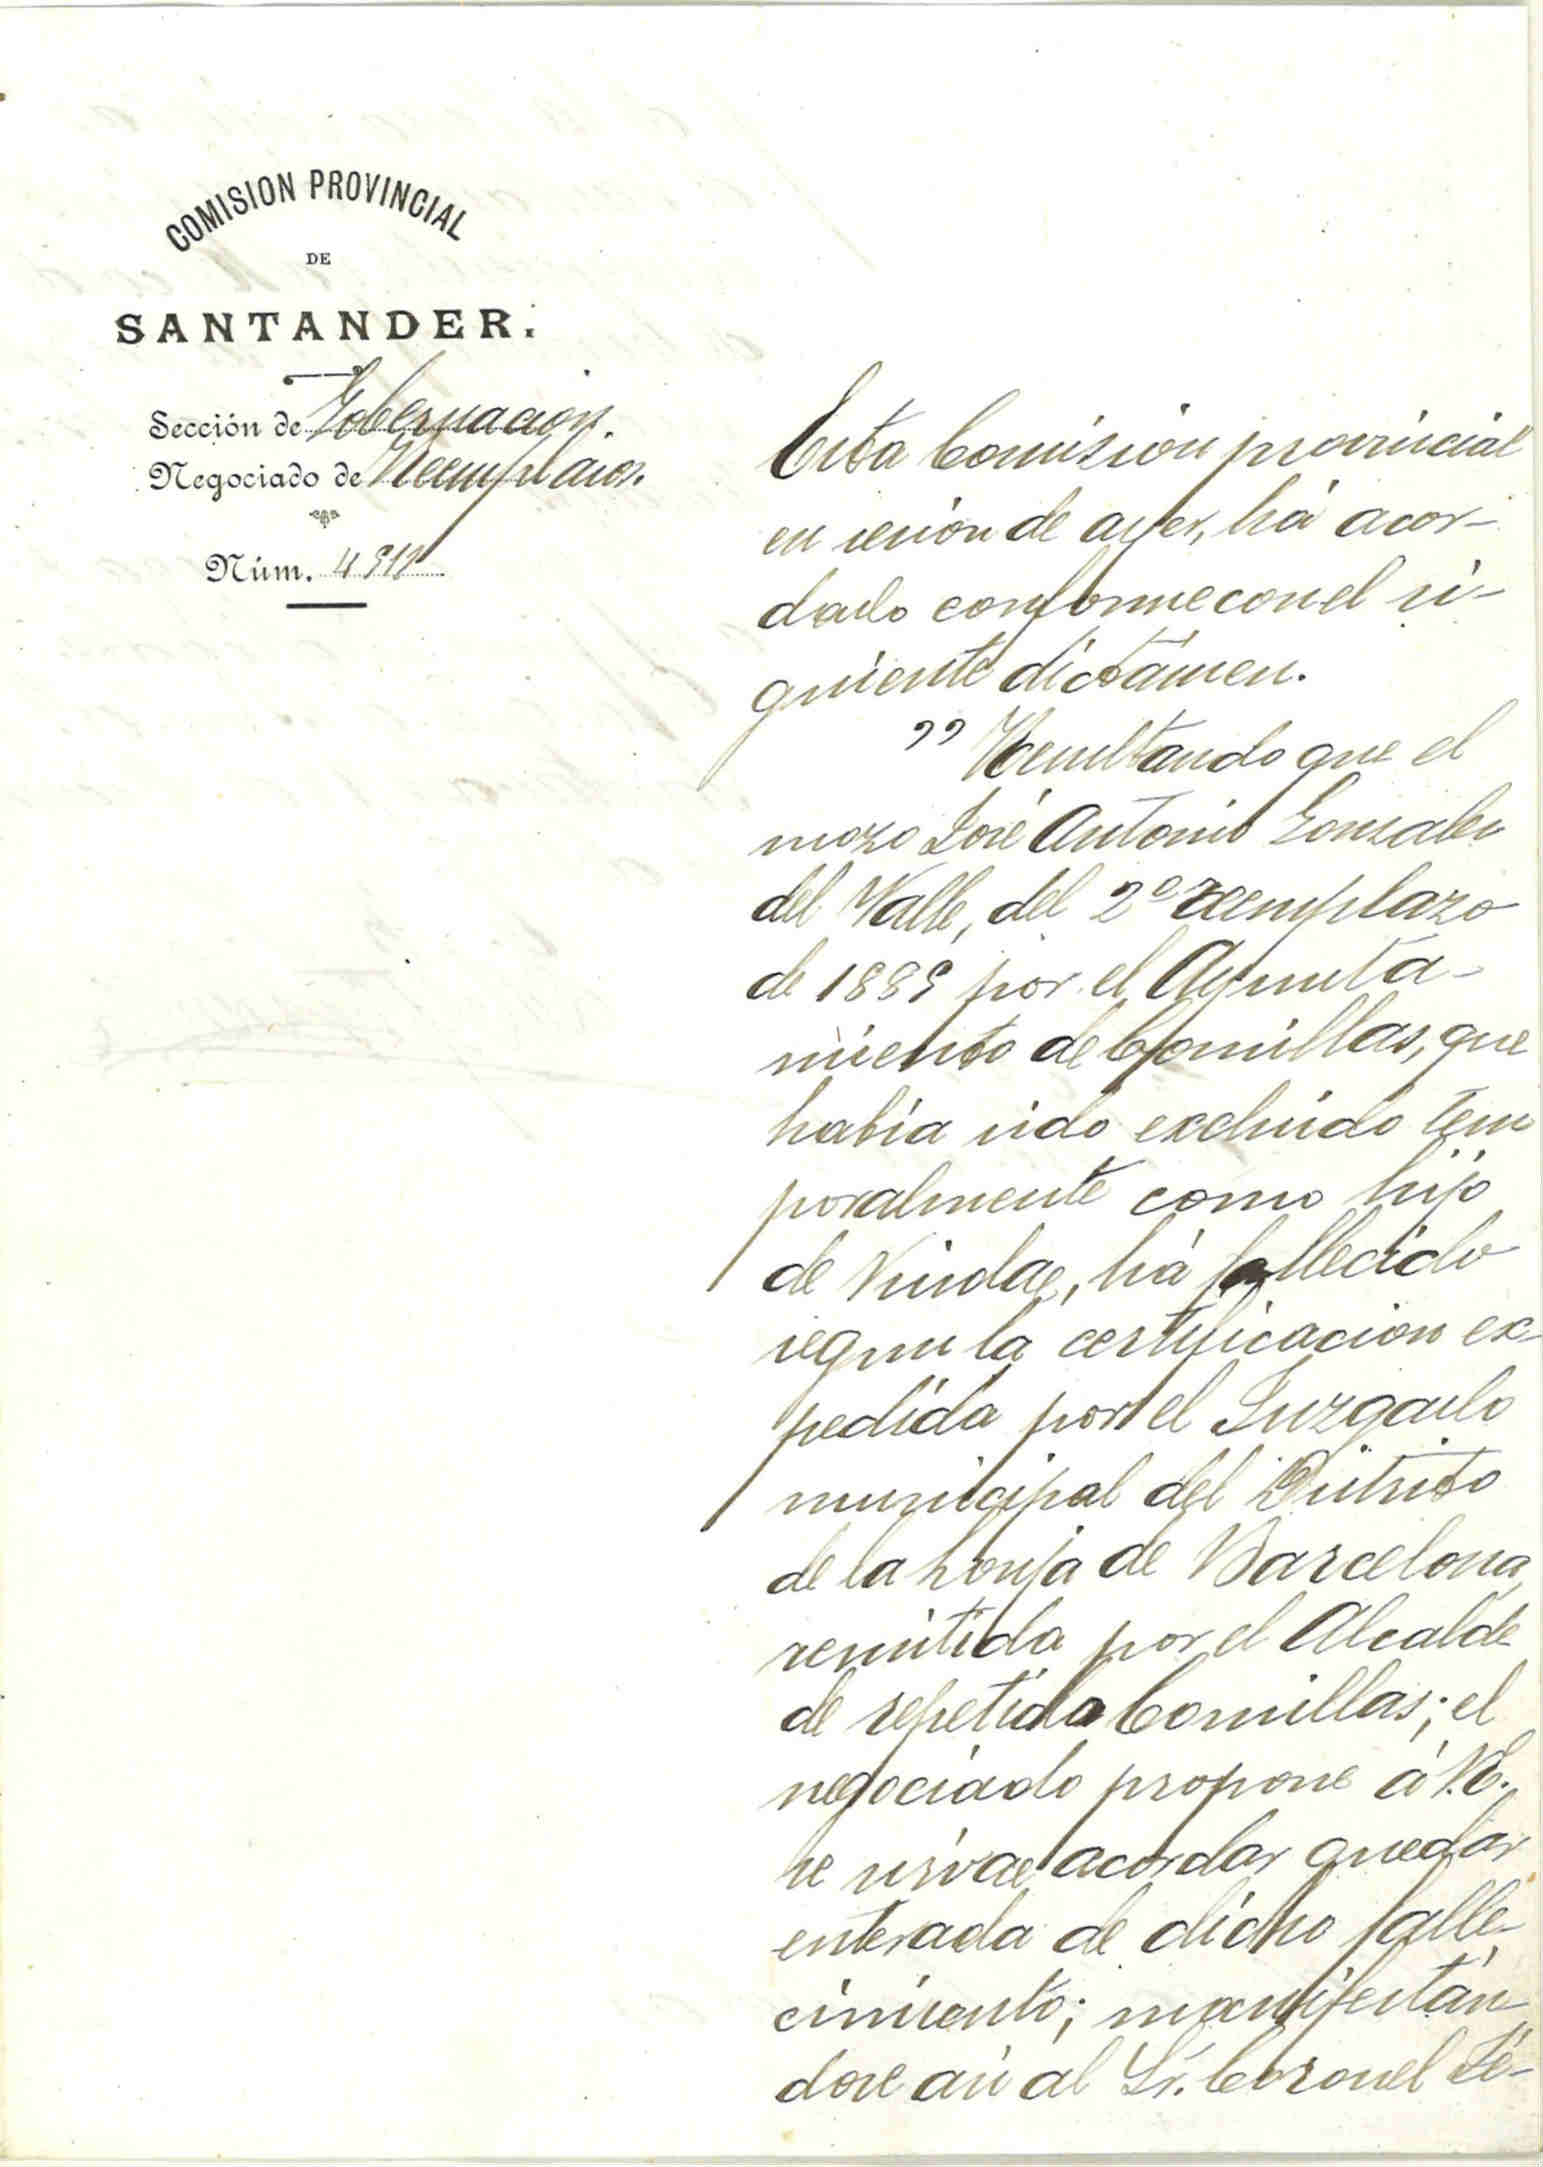 COMISION PROVINCIAL
DE
SANTANDER.
Sección de Gobernacion.
Negociado de Reemplazos.
Núm. 4912
Esta Comisión provincial
en sesión de ayer, há acor-
dado conforme con el si-
guiente dictámen.
"Resultando que el
mozo José Antonio Gonzalez
del Valle, del 2º reemplazo
de 1889 por el Ayunta-
miento de Comillas, que
había sido excluido tem
poralmente como hijo
de Viuda, há fallecido
segun la certificacion ex-
pedida por el Juzgado
municipal del Distrito
de la Lonja de Barcelona,
remitida por el Alcalde
de repetida Comillas; el
negociado propone á V.E.
se sirva acordar quedar
enterada de dicho falle-
cimiento; manifestán
dose así al Sr. Coronel Jé-